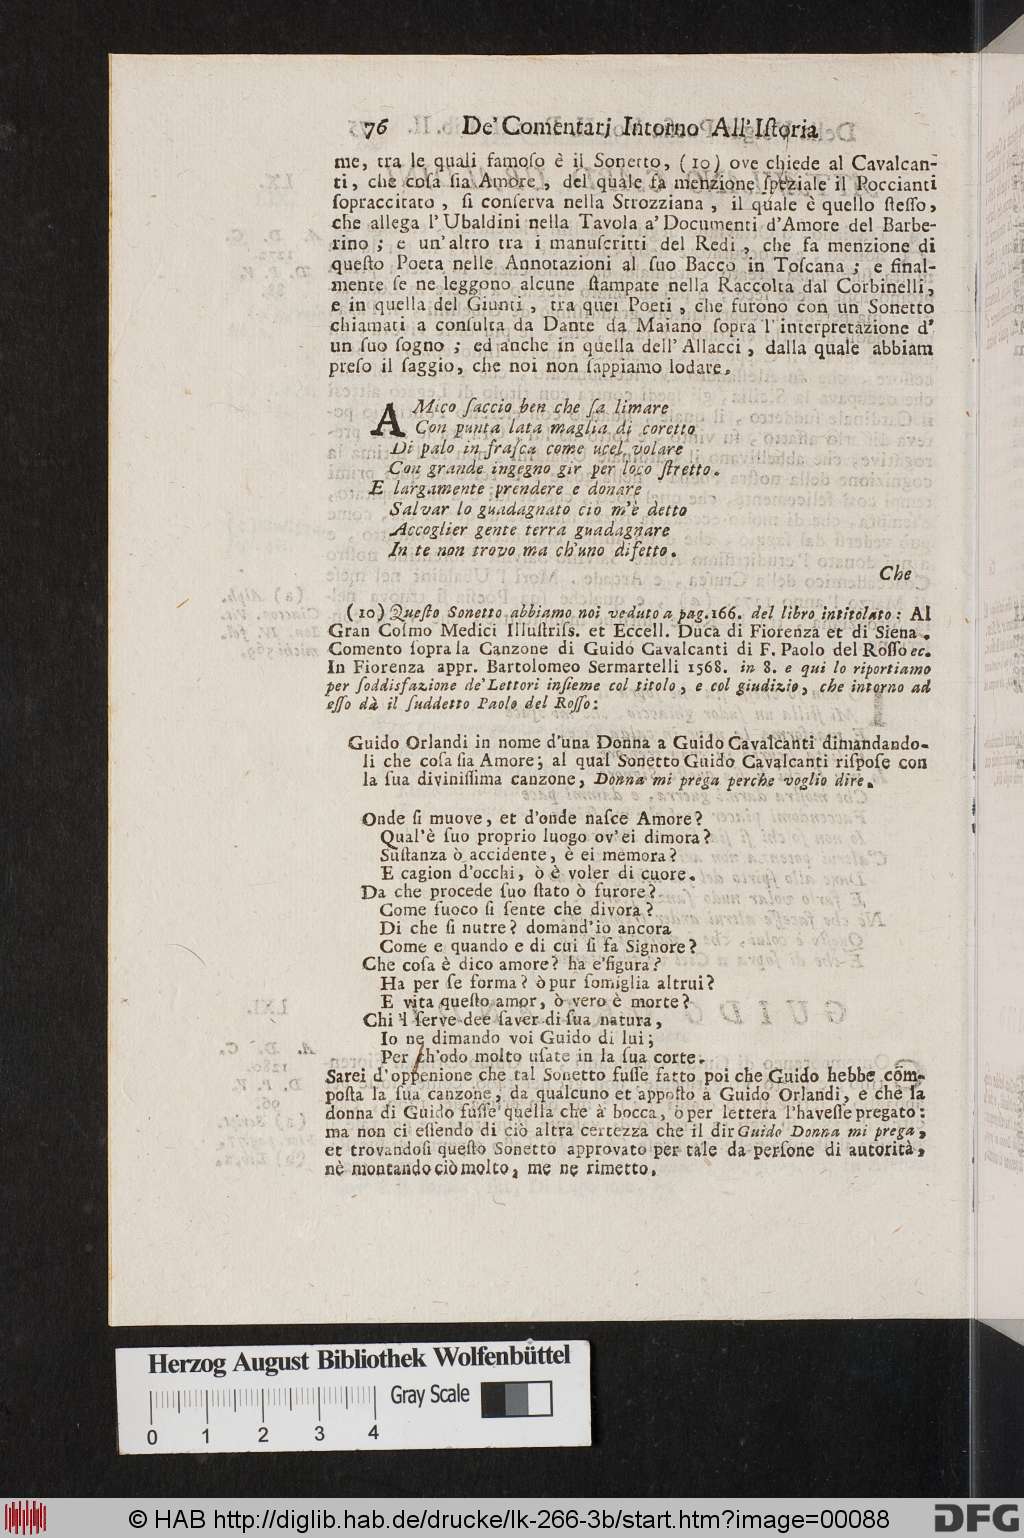 76 De' Comentarj Intorno All' Iſtoria
me, tra le quali famoſo è il Sonetto, (10) ove chiede al Cavalcan-
ti, che coſa ſia Amore, del quale fa menzione ſpeziale il Poccianti
ſopraccitato, ſi conſerva nella Strozziana, il quale è quello ſteſſo,
che allega l'Ubaldini nella Tavola a' Documenti d'Amore del Barbe-
rino; e un'altro tra i manuſcritti del Redi, che fa menzione di
queſto Poeta nelle Annotazioni al ſuo Bacco in Toſcana; e final-
mente ſe ne leggono alcune ſtampate nella Raccolta dal Corbinelli,
e in quella del Giunti, tra quei Poeti, che furono con un Sonetto
chiamati a conſulta da Dante da Maiano ſopra l'interpretazione d'
un ſuo ſogno; ed anche in quella dell'Allacci, dalla quale abbiam
preſo il ſaggio, che noi non ſappiamo lodare.
AMico ſaccio ben che ſa limare
Con punta lata maglia di coretto
Di palo in fraſca come ucel volare
Con grande ingegno gir per loco ſtretto.
E largamente prendere e donare
Salvar lo guadagnato ciò m'è detto
Accoglier gente terra guadagnare
In te non trovo ma ch'uno difetto.
Che
(10) Queſto Sonetto abbiamo noi veduto a pag.166. del libro intitolato: Al
Gran Coſmo Medici Illuſtriſs. et Eccell. Duca di Fiorenza et di Siena.
Comento ſopra la Canzone di Guido Cavalcanti di F. Paolo del Roſſo ec.
In Fiorenza appr. Bartolomeo Sermartelli 1568. in 8. e qui lo riportiamo
per ſoddisfazione de' Lettori inſieme col titolo, e col giudizio, che intorno ad
eſſo dà il ſuddetto Paolo del Roſſo:
Guido Orlandi in nome d'una Donna a Guido Cavalcanti dimandando-
li che coſa ſia Amore; al qual Sonetto Guido Cavalcanti riſpoſe con
la ſua diviniſſima canzone, Donna mi prega perche voglio dire.
Onde ſi muove, et d'onde naſce Amore?
Qual'è ſuo proprio luogo ov'ei dimora?
Suſtanza ò accidente, è ei memora?
E cagion d'occhi, ò è voler di cuore.
Da che procede ſuo ſtato ò furore?
Come fuoco ſi ſente che divora?
Di che ſi nutre? domand'io ancora
Come e quando e di cui ſi fa Signore?
Che coſa è dico amore? ha e'figura?
Ha per ſe forma? ò pur ſomiglia altrui?
E vita queſto amor, ò vero è morte?
Chi 'l ſerve dee ſaver di ſua natura,
Io ne dimando voi Guido di lui;
Per ch'odo molto uſate in la ſua corte.
Sarei d'oppenione che tal Sonetto fuſſe fatto poi che Guido hebbe com-
poſta la ſua canzone, da qualcuno et appoſto a Guido Orlandi, e che la
donna di Guido fuſſe quella che a bocca, ò per lettera l'haveſſe pregato:
ma non ci eſſendo di ciò altra certezza che il dir Guido Donna mi prega,
et trovandoſi queſto Sonetto approvato per tale da perſone di autorità,
nè montando ciò molto, me ne rimetto.
Herzog August Bibliothek Wolfenbüttel
Gray Scale
0 1 2 3 4
© HAB http://diglib.hab.de/drucke/lk-266-3b/start.htm?image=00088
DFG